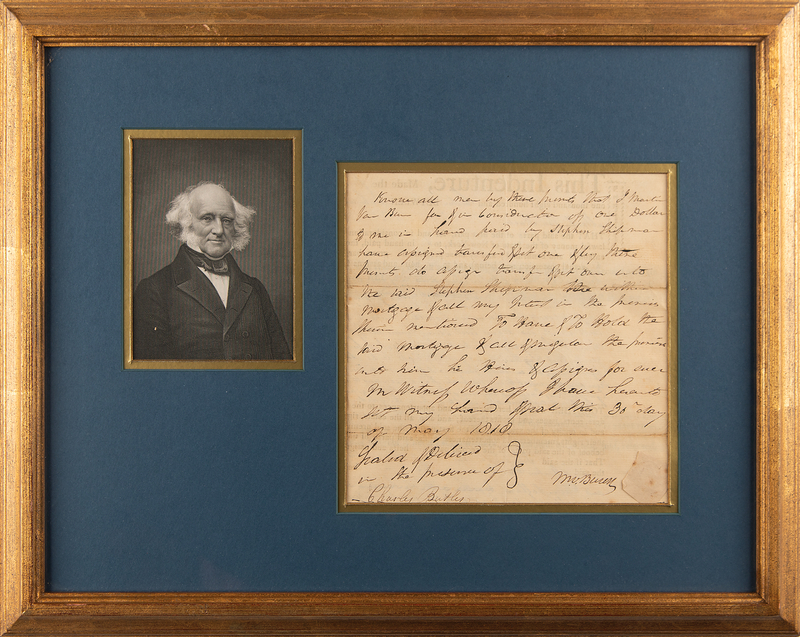 Know all men by these presents that I Martin
Van Buren for & in Consideration of one Dollar
to me in hand paid by Stephen Shipman
have assigned transfer & set over & by these
presents do assign transfer & set over unto
the said Stephen Shipman the within
mortgage & all my in the premises
therein mentioned To Have & To Hold the
said mortgage & all & singular the premises
unto him his Heirs & Assigns for ever
In Witness Whereof I have hereunto
set my hand & seal this 30th day
of May 1818
Sealed & Delivered
in the presence of
Charles Butler
MVBuren